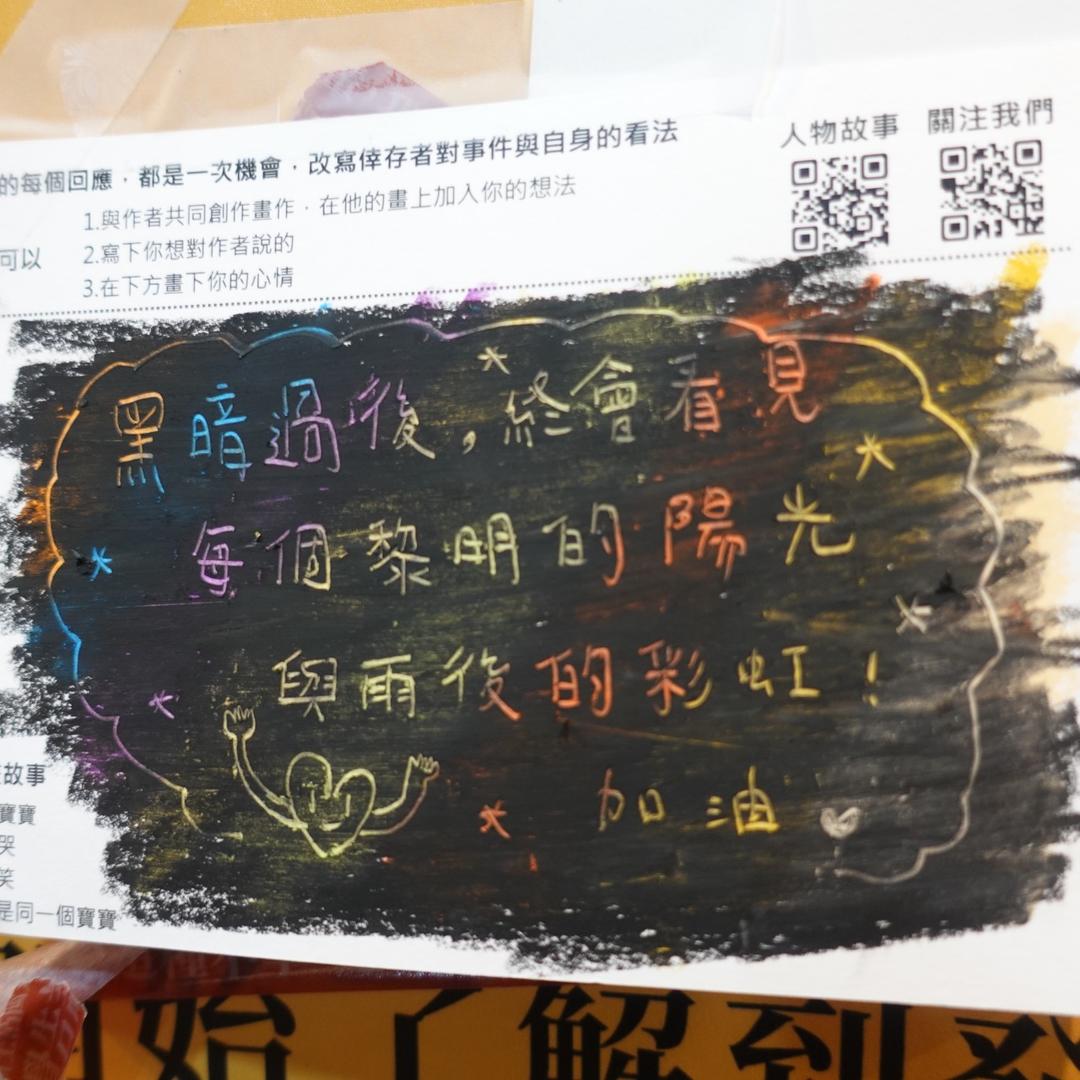 人物故事 關注我們
的每個回應，都是一次機會，改寫倖存者對事件與自身的看法
1.與作者共同創作畫作，在他的畫上加入你的想法
可以 2.寫下你想對作者說的
3.在下方畫下你的心情
黑暗過後，終會看見
每個黎明的陽光
與雨後的彩虹！
加油
故事
寶寶
哭
笑
是同一個寶寶
始了解到